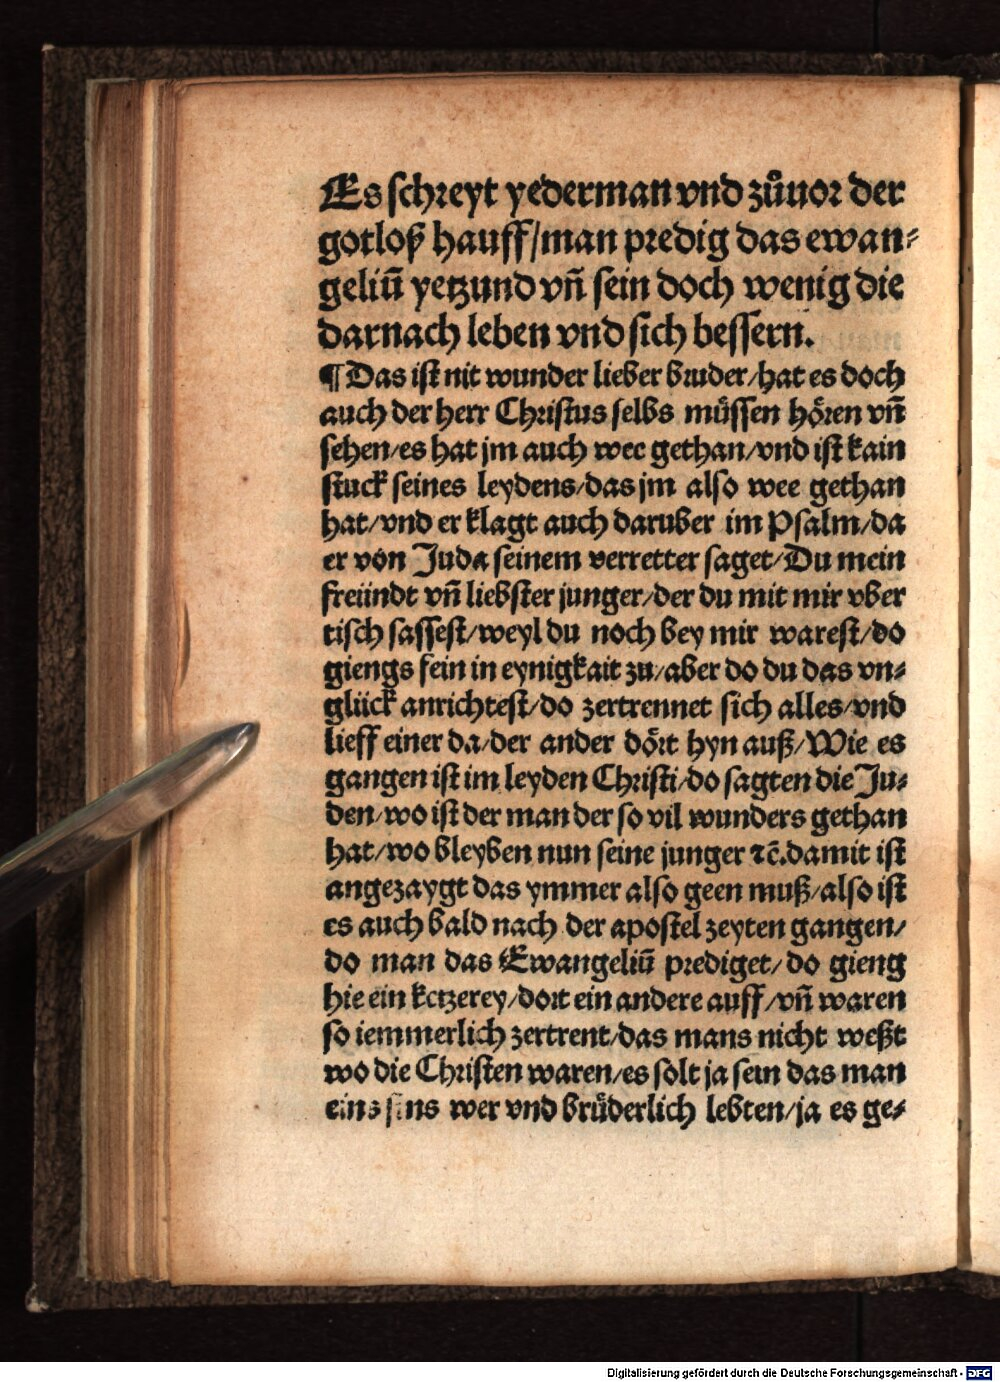 Es schreyt yederman vnd zůuor der
gotloß hauff/man predig das ewan-
geliū yetzund vñ sein doch wenig die
darnach leben vnd sich bessern.
¶ Das ist nit wunder lieber bruder/hat es doch
auch der herr Christus selbs müssen hören vñ
sehen/es hat jm auch wee gethan/vnd ist kain
stuck seines leydens/das jm also wee gethan
hat/vnd er klagt auch daruber im Psalm/da
er von Juda seinem verretter saget/Du mein
freündt vñ liebster junger/der du mit mir vber
tisch sassest/weyl du noch bey mir warest/do
giengs fein in eynigkait zu/aber do du das vn-
glück anrichtest/do zertrennet sich alles/vnd
lieff einer da/der ander dört hyn auß/Wie es
gangen ist im leyden Christi/do sagten die Ju-
den/wo ist der man der so vil wunders gethan
hat/wo bleyben nun seine junger ꝛc̄.damit ist
angezaygt das ymmer also geen muß/also ist
es auch bald nach der apostel zeyten gangen/
do man das Ewangeliū prediget/do gieng
hie ein ketzerey/dort ein andere auff/vñ waren
so iemmerlich zertrent/das mans nicht weßt
wo die Christen waren/es solt ja sein das man
eins sins wer vnd brüderlich lebten/ja es ge-
Digitalisierung gefördert durch die Deutsche Forschungsgemeinschaft - DFG